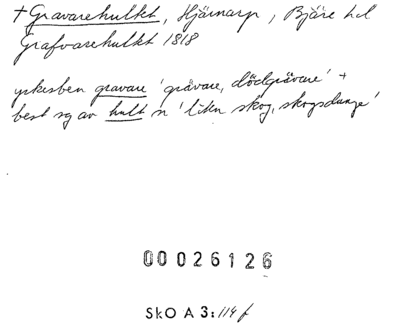 + Gravarehultet, Hjärnarp, Bjäre hd
Grafvarehultet 1818
yrkesben gravare 'grävare, dödgrävare' +
best sg av hult n 'liten skog, skogsdunge'
00026126
SkO A 3: 114 f